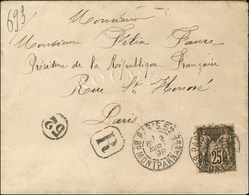 693
Monsieur
Monsieur Félix Faure
Président de la République Française
Rue St Honoré
Paris
52
R
PARIS 52
R. MONTPARNASSE
25